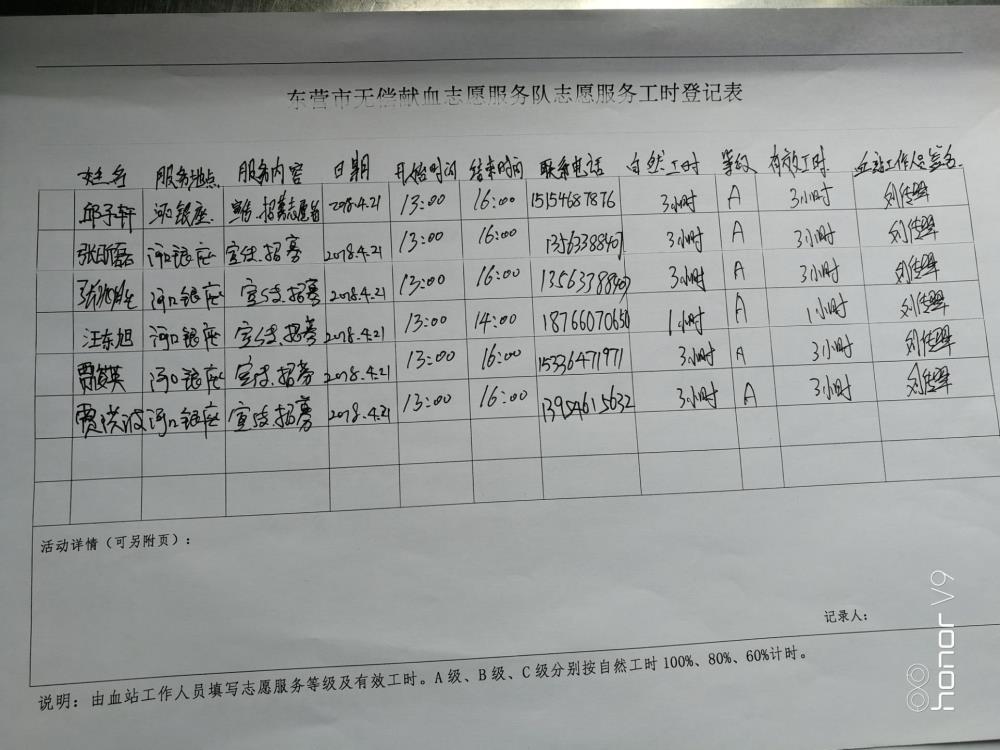 东营市无偿献血志愿服务队志愿服务工时登记表
姓名 服务地点 服务内容 日期 开始时间 结束时间 联系电话 自然工时 等级 有效工时 血站工作人员签名
邱子轩 河口银座 宣传.招募志愿者 2018.4.21 13:00 16:00 15154687876 3小时 A 3小时
河口银座 宣传.招募 2018.4.21 13:00 16:00 3小时 A 3小时
河口银座 宣传.招募 2018.4.21 13:00 16:00 3小时 A 3小时
汪东旭 河口银座 宣传.招募 2018.4.21 13:00 14:00 18766070650 1小时 A 1小时
河口银座 宣传.招募 2018.4.21 13:00 16:00 15336471971 3小时 A 3小时
贾洪波 河口银座 宣传.招募 2018.4.21 13:00 16:00 3小时 A 3小时
活动详情（可另附页）：
记录人：
说明：由血站工作人员填写志愿服务等级及有效工时。A 级、B 级、C 级分别按自然工时 100%、80%、60%计时。
honor V9